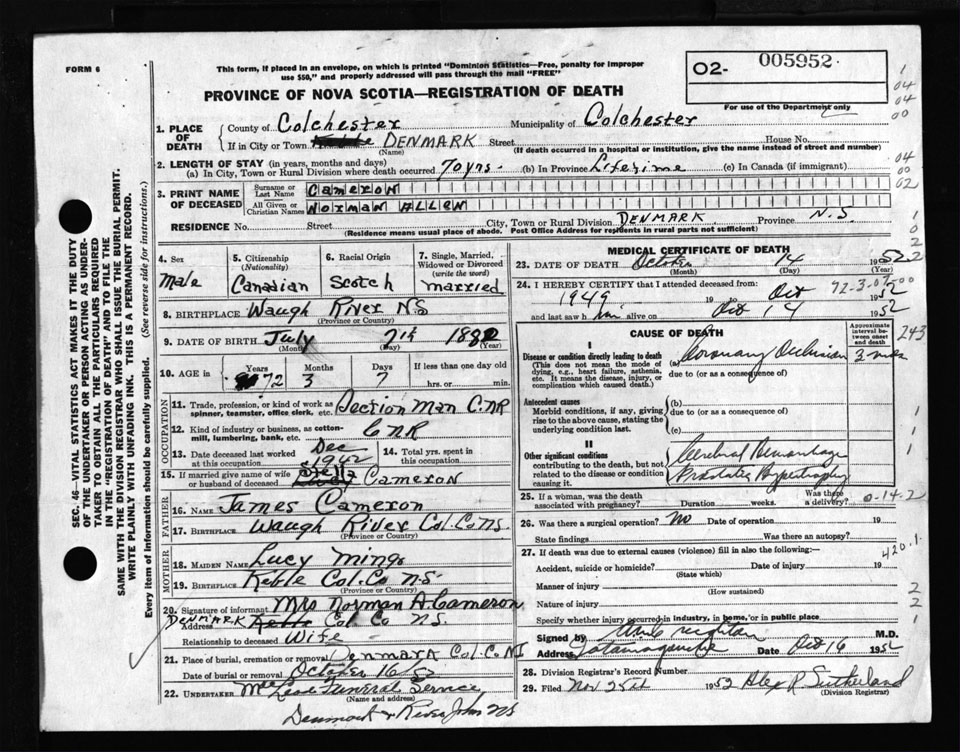 FORM 6
This form, if placed in an envelope, on which is printed "Dominion Statistics—Free, penalty for improper
use $50," and properly addressed will pass through the mail "FREE"
PROVINCE OF NOVA SCOTIA—REGISTRATION OF DEATH
O2- 005952
For use of the Department only
1. PLACE OF DEATH
County of Colchester Municipality of Colchester
If in City or Town DENMARK Street House No.
(Name) (If death occurred in a hospital or institution, give the name instead of street and number)
2. LENGTH OF STAY (in years, months and days)
(a) In City, Town or Rural Division where death occurred 70 yrs. (b) In Province Lifetime (c) In Canada (if immigrant)
3. PRINT NAME OF DECEASED
Surname or Last Name CAMERON
All Given or Christian Names NORMAN ALLEN
RESIDENCE No. Street City, Town or Rural Division DENMARK Province N.S.
(Residence means usual place of abode. Post Office Address for residents in rural parts not sufficient)
4. Sex Male
5. Citizenship (Nationality) Canadian
6. Racial Origin Scotch
7. Single, Married, Widowed or Divorced (write the word) married
8. BIRTHPLACE Waugh River N.S
(Province or Country)
9. DATE OF BIRTH July 7th 188
(Month) (Day) (Year)
10. AGE in Years 72 Months 3 Days 7 If less than one day old
hrs. or min.
OCCUPATION
11. Trade, profession or kind of work as spinner, teamster, office clerk, etc. Section Man C.N.R
12. Kind of industry or business, as cotton-mill, lumbering, bank, etc. CNR
13. Date deceased last worked at this occupation Dec 1942
14. Total yrs. spent in this occupation
15. If married give name of wife or husband of deceased Cameron
FATHER
16. Name James Cameron
17. Birthplace Waugh River Col. Co NS.
(Province or Country)
MOTHER
18. MAIDEN NAME Lucy Mingo
19. BIRTHPLACE Keble Col. Co N.S.
(Province or Country)
20. Signature of informant Mrs Norman A. Cameron
Address DENMARK Col. Co N.S.
Relationship to deceased Wife
21. Place of burial, cremation or removal Denmark Col. Co
Date of burial or removal October 16/52
22. UNDERTAKER Funeral Service
(Name and address)
Denmark & River John NS
MEDICAL CERTIFICATE OF DEATH
23. DATE OF DEATH October 14 1952
(Month) (Day) (Year)
24. I HEREBY CERTIFY that I attended deceased from:
1949 19 to Oct 1952
and last saw him alive on Oct 14 1952
CAUSE OF DEATH
Approximate interval between onset and death
I
Disease or condition directly leading to death
(This does not mean the mode of dying, e.g., heart failure, asthenia, etc. It means the disease, injury, or complication which caused death.)
(a) Coronary Occlusion 3 mos
due to (or as a consequence of)
Antecedent causes
Morbid conditions, if any, giving rise to the above cause, stating the underlying condition last.
(b)
due to (or as a consequence of)
(c)
II
Other significant conditions
contributing to the death, but not related to the disease or condition causing it.
Cerebral Hemorrhage
Prostatic Hypertrophy
25. If a woman, was the death associated with pregnancy? Duration weeks. Was there a delivery?
26. Was there surgical operation? No Date of operation 19
State findings Was there an autopsy?
27. If death was due to external causes (violence) fill in also the following:—
Accident, suicide or homicide? Date of injury 19
(State which)
Manner of injury
(How sustained)
Nature of injury
Specify whether injury occurred in industry, in home, or in public place
Signed by M.D.
Address Tatamagouche Date Oct 16 1952
28. Division Registrar's Record Number
29. Filed Nov 25th 1952 Alex R Sutherland
(Division Registrar)
SEC. 46—VITAL STATISTICS ACT MAKES IT THE DUTY
OF THE UNDERTAKER OR PERSON ACTING AS UNDER-
TAKER TO OBTAIN ALL THE PARTICULARS REQUIRED
IN THE "REGISTRATION OF DEATH" AND TO FILE THE
SAME WITH THE DIVISION REGISTRAR WHO SHALL ISSUE THE BURIAL PERMIT.
WRITE PLAINLY WITH UNFADING INK. THIS IS A PERMANENT RECORD.
Every item of information should be carefully supplied. (See reverse side for instructions.)
1
04
04
00
04
00
02
1
0
2
2
92-3-0
243
1
1
1
0-14-2
420.1.
2
2
1